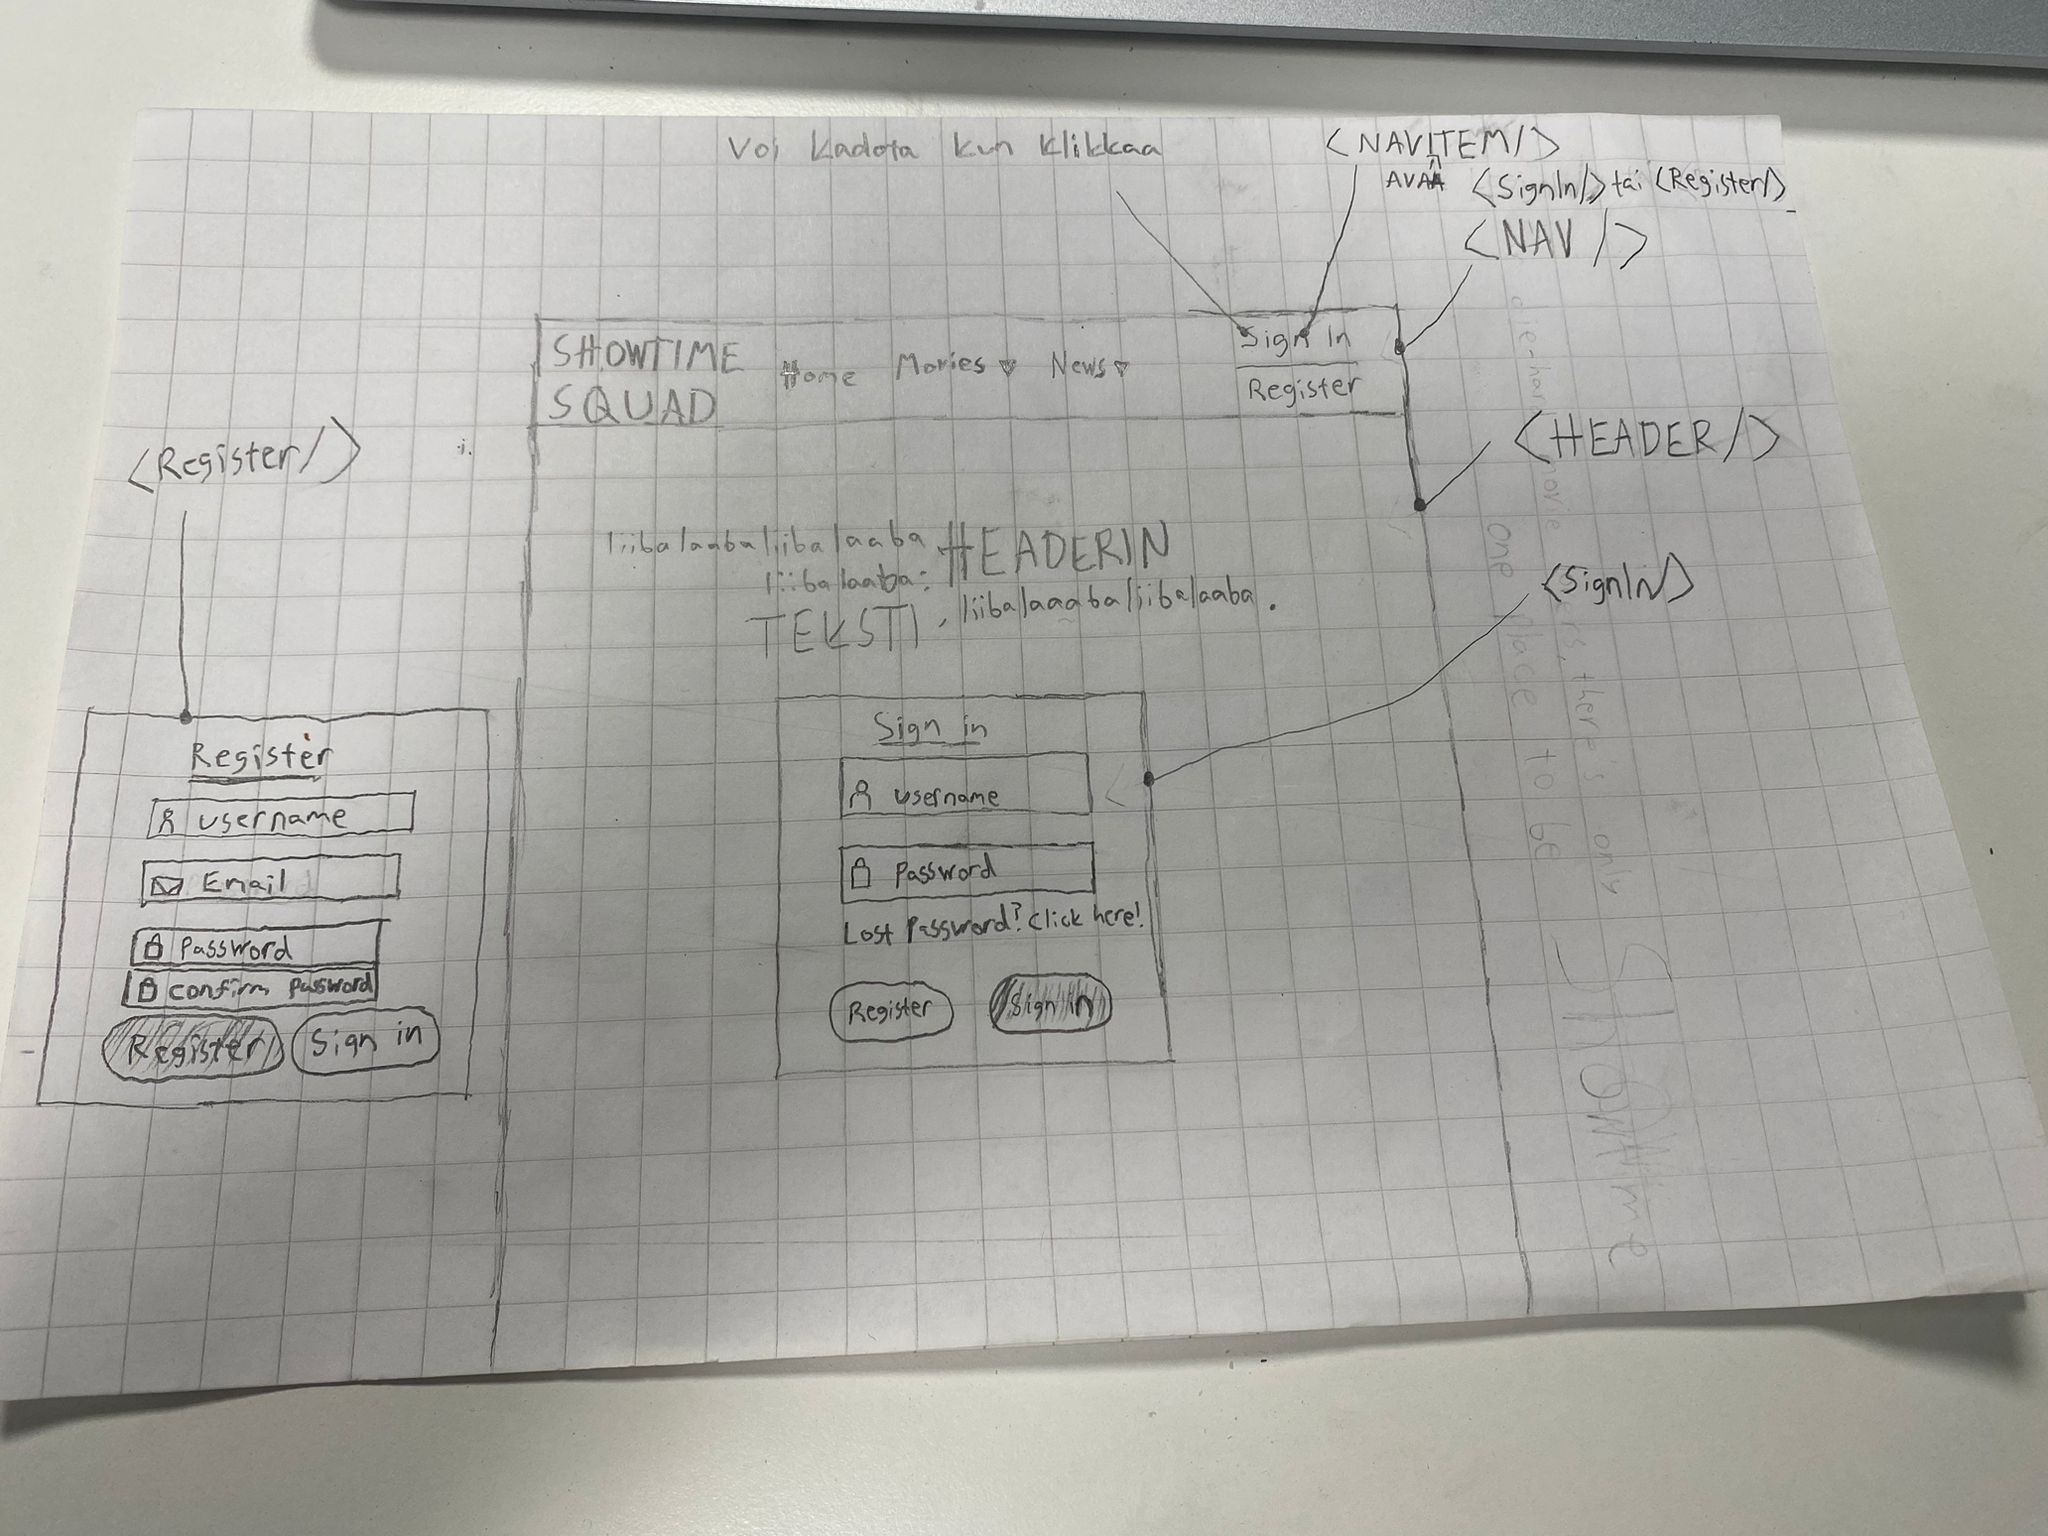 Voi kadota kun klikkaa
<NAVITEM/>
AVAA <SignIn/> tai <Register/>
<NAV/>
SHOWTIME
SQUAD
Home
Movies ▼
News ▼
Sign In
Register
<HEADER/>
<Register/>
liibalaabaliibalaaba HEADERIN
liibalaaba:
TEKSTI, liibalaaabaliibalaaba.
<SignIN/>
Register
username
Email
Password
confirm Password
Register
Sign in
Sign in
username
Password
Lost Password? Click here!
Register
Sign in
there's only
one place to be
Showtime